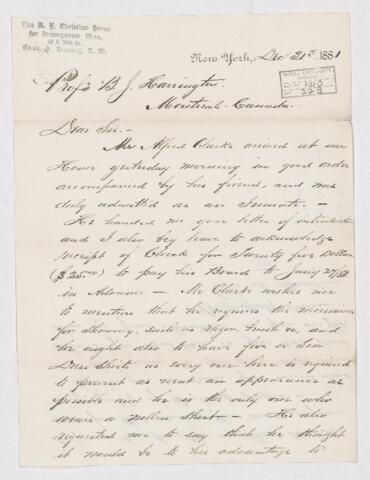 The N. Y. Christian Home
for Intemperate Men,
48 E. 78th St.
Chas. A. Bunting, R. M.
New York, Dec 21st 1881
Prof. B. J. Harrington
Montreal - Canada -
Dear Sir -
Mr Alfred Clarke arrived at our
Home yesterday morning in good order
accompanied by his friend, and was
duly admitted as an Inmate. -
He handed me your letter of introduction
and I also beg leave to acknowledge
receipt of Check for Twenty five Dollars
($25.00) to pay his Board to Jany
in Advance - Mr Clarke wishes me
to mention that he requires the
for Shaving, such as razor, brush &c, and
he ought also to have five or Six
Dress Shirts as every one here is required
to present as neat an appearance as
possible and he is the only one who
wears a woollen Shirt - He also
requested me to say that he thought
it would be to his advantage to